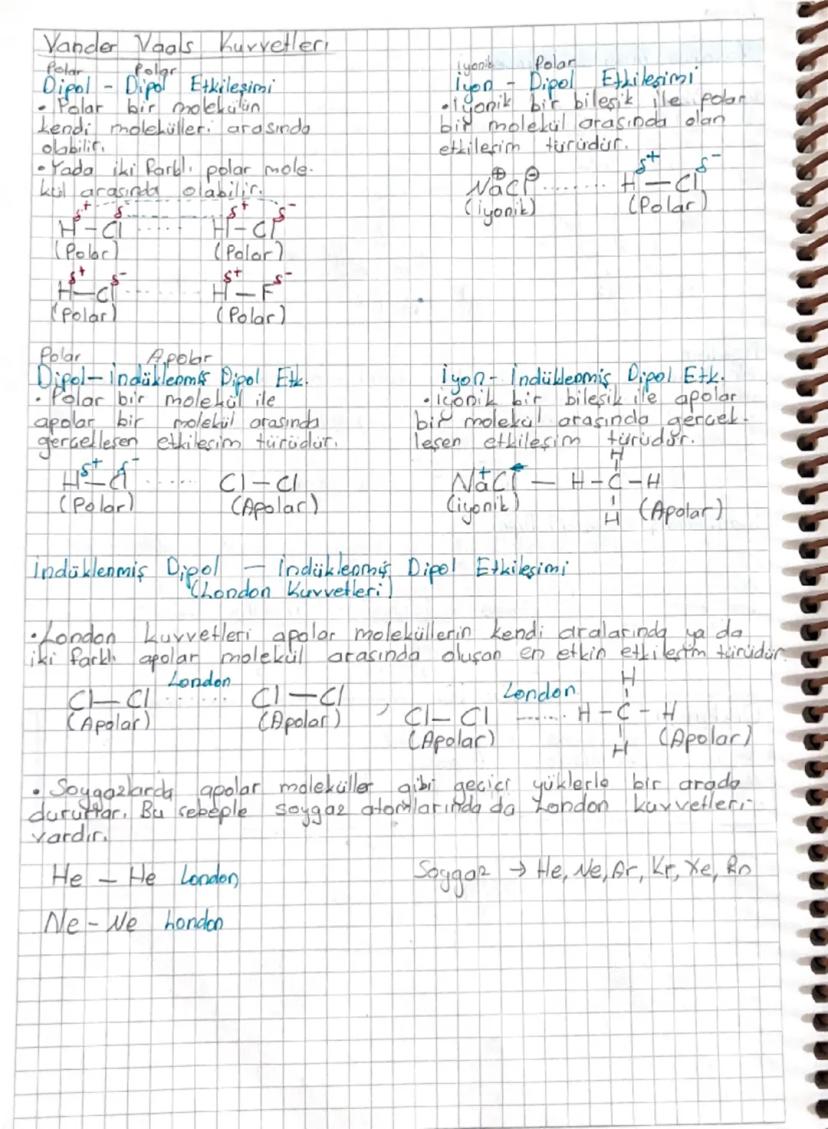 Vander Vaals Kuvvetleri
Polar Polar
Dipol - Dipol Etkileşimi
• Polar bir molekülün
kendi molekülleri arasında
olabilir.
• Yada iki farklı polar mole-
kül arasında olabilir.
δ+ δ- δ+ δ-
H - Cl ...... H - Cl
(Polar) (Polar)
δ+ δ- δ+ δ-
H - Cl ...... H - F
(Polar) (Polar)
iyonik Polar
İyon - Dipol Etkileşimi
• İyonik bir bileşik ile polar
bir molekül arasında olan
etkileşim türüdür.
⊕ ⊖ δ+ δ-
NaCl ........ H - Cl
(iyonik) (Polar)
Polar Apolar
Dipol - İndüklenmiş Dipol Etk.
• Polar bir molekül ile
apolar bir molekül arasında
gerçelleşen etkileşim türüdür.
δ+ δ-
H - Cl ...... Cl - Cl
(Polar) (Apolar)
İyon - İndüklenmiş Dipol Etk.
• iyonik bir bileşik ile apolar
bir molekül arasında gerçek-
leşen etkileşim türüdür.
H
+ -
NaCl — H - C - H
(iyonik) H (Apolar)
İndüklenmiş Dipol — İndüklenmiş Dipol Etkileşimi
(London Kuvvetleri)
• London kuvvetleri apolar moleküllerin kendi aralarında ya da
iki farklı apolar molekül arasında oluşan en etkin etkileşim türüdür
London
Cl - Cl ...... Cl - Cl ,
(Apolar) (Apolar)
H
London
Cl - Cl ...... H - C - H
(Apolar) H (Apolar)
• Soygazlarda apolar moleküller gibi geçici yüklerle bir arada
dururlar. Bu sebeple soygaz atomlarında da London kuvvetleri
vardır.
He - He London
Soygaz → He, Ne, Ar, Kr, Xe, Rn
Ne - Ne London